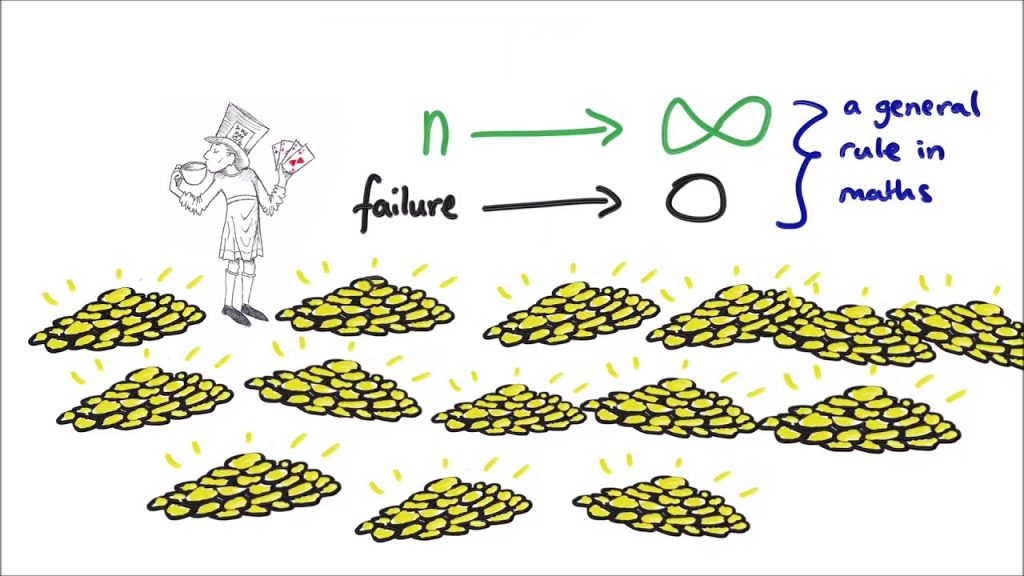 n → ∞
failure → 0
a general
rule in
maths